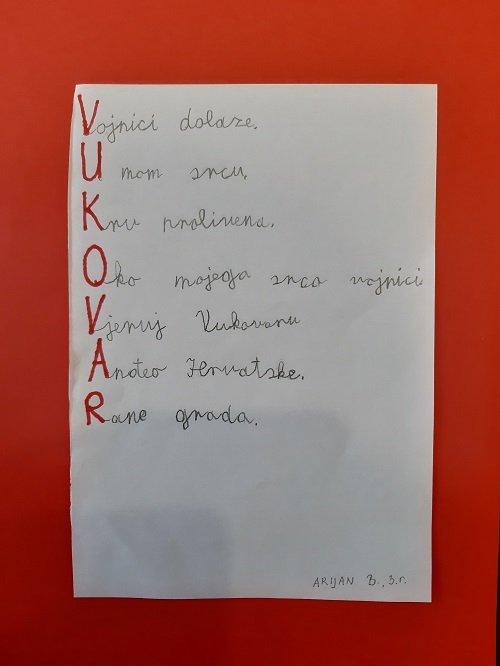 Vojnici dolaze.
U mom srcu.
Krv prolivena.
Oko mojega srca vojnici
Vjeruj Vukovaru
Anđeo Hrvatske.
Rane grada.
ARIJAN B., 3.r.